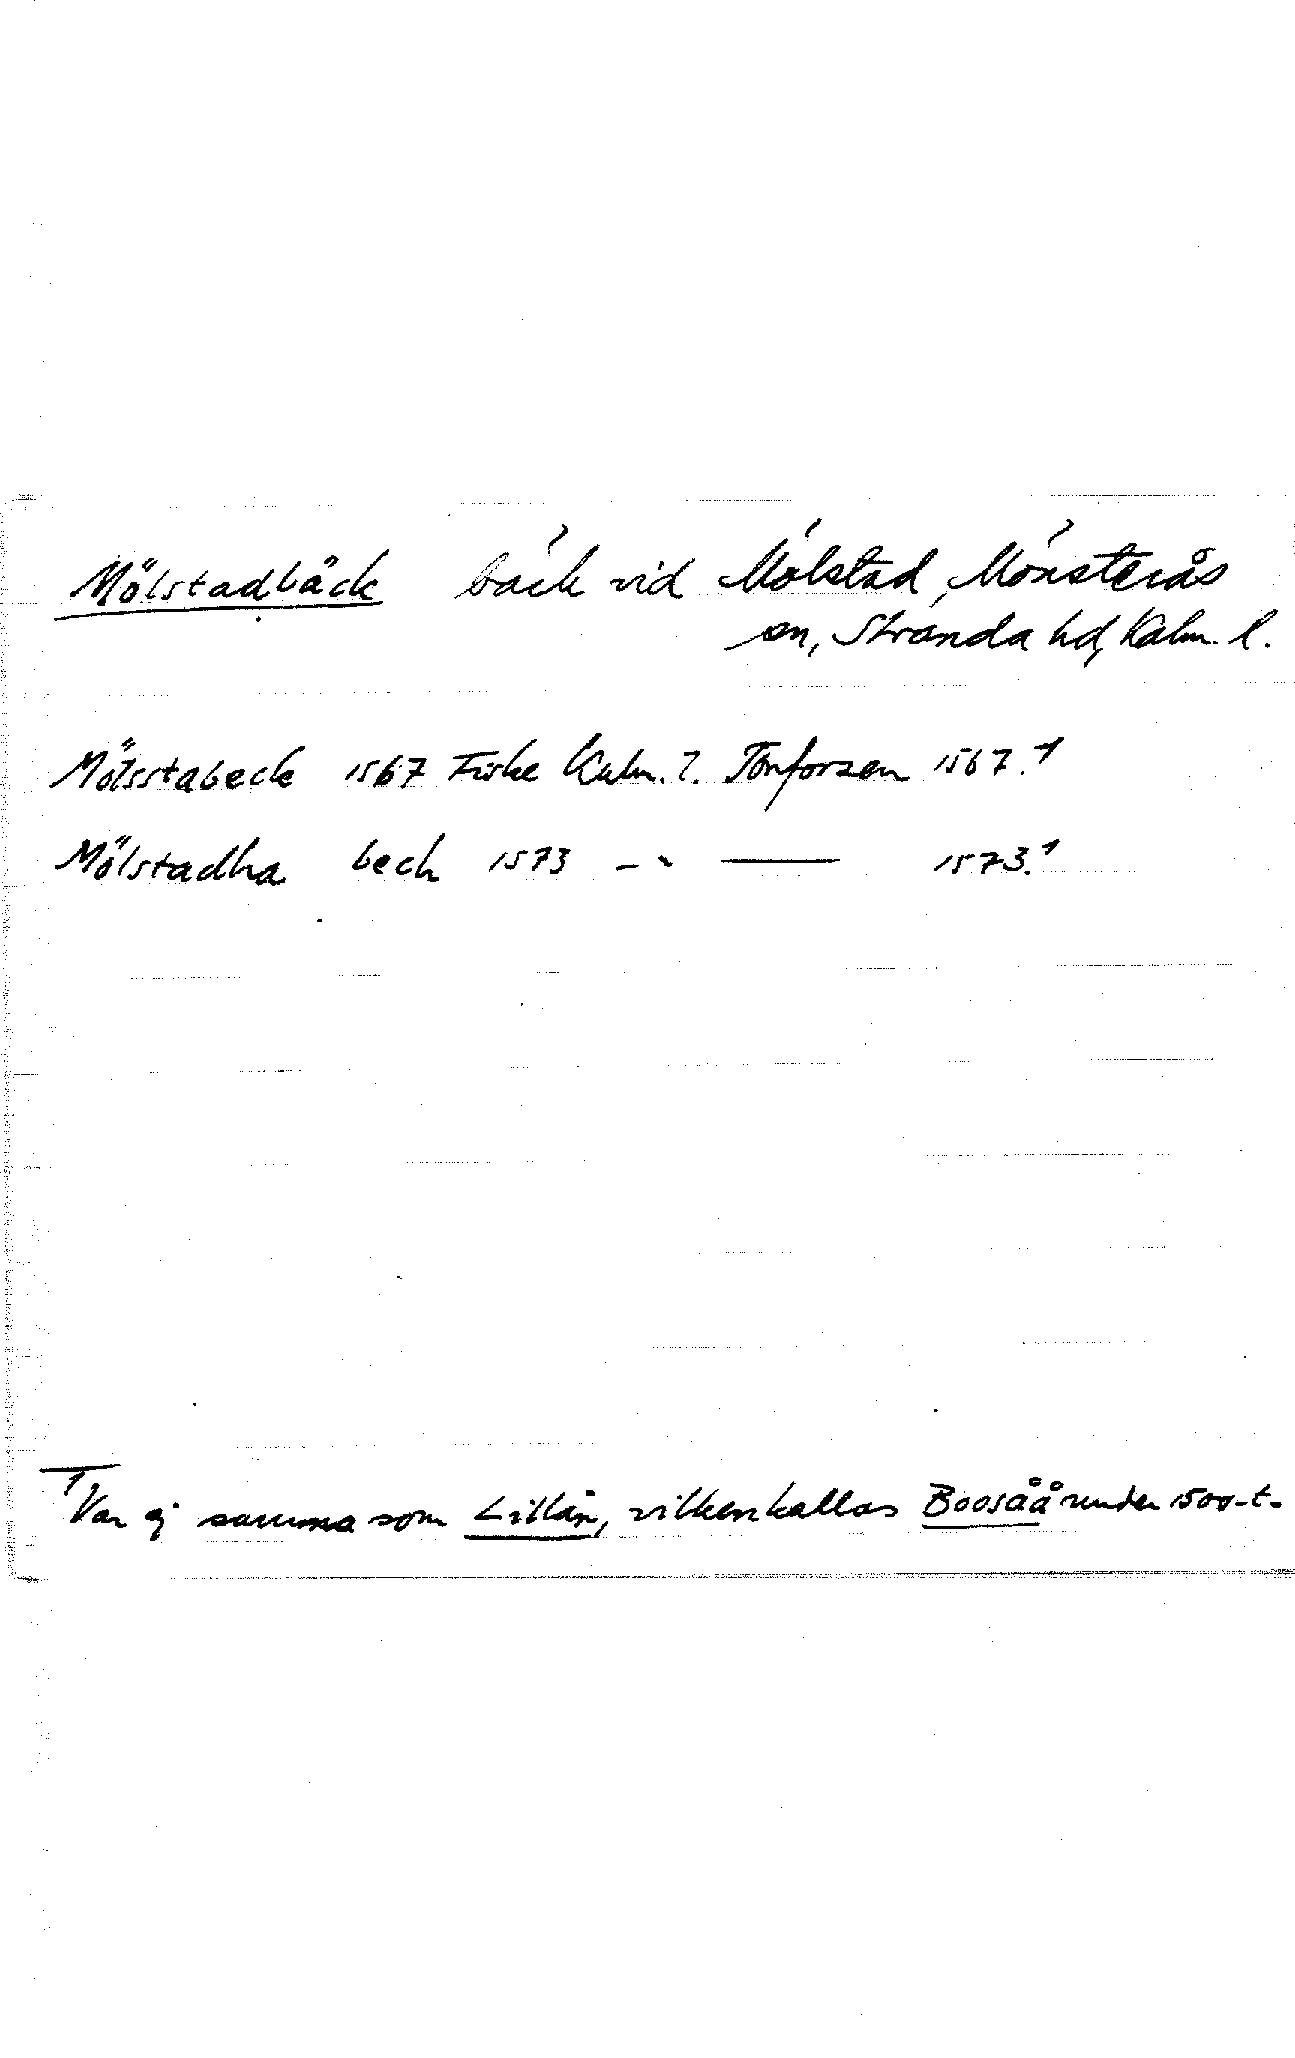 Mölstadbäck bäck vid Mölstad, Mönsterås
sn, Stranda hd, Kalm. l.
Mölsstabeck 1567 Fiske Kalm. l. Törnforsen 1567.¹
Mölstadha bech 1573 –"– 1573.¹
¹ Var ej samma som Lillån, vilken kallas Boosåå under 1500-t.